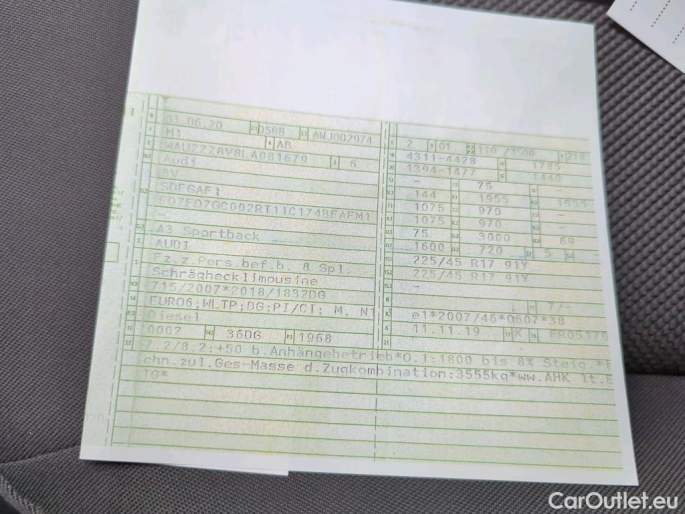 31.06.20 0588 AWJ002974
M1 AB
6
Audi
8V
SDFGAF1
-
A3 Sportback
AUDI
Fz.z.Pers.bef.b. 8 Spl.
Schräghecklimousine
715/2007*2018/1832DG
EURO6;WLTP;DG;PI/CI; M, N1
Diesel
0002 36DG 1968
2 01 110 /3500 216
4311-4428 1785
1394-1477 1440
- 75 -
144 1955
1075 970 -
1075 970 -
75 3000 69
1600 720 5 -
225/45 R17 91Y
225/45 R17 91Y
-
7/-
e1*2007/46*0607*38
11.11.19 K
7.2/8.2:+50 b.Anhängebetrieb*O.1:1800 bis 8% Steig.*
chn.zul.Ges-Masse d.Zugkombination:3555kg*ww.AHK lt.E
TG*
CarOutlet.eu